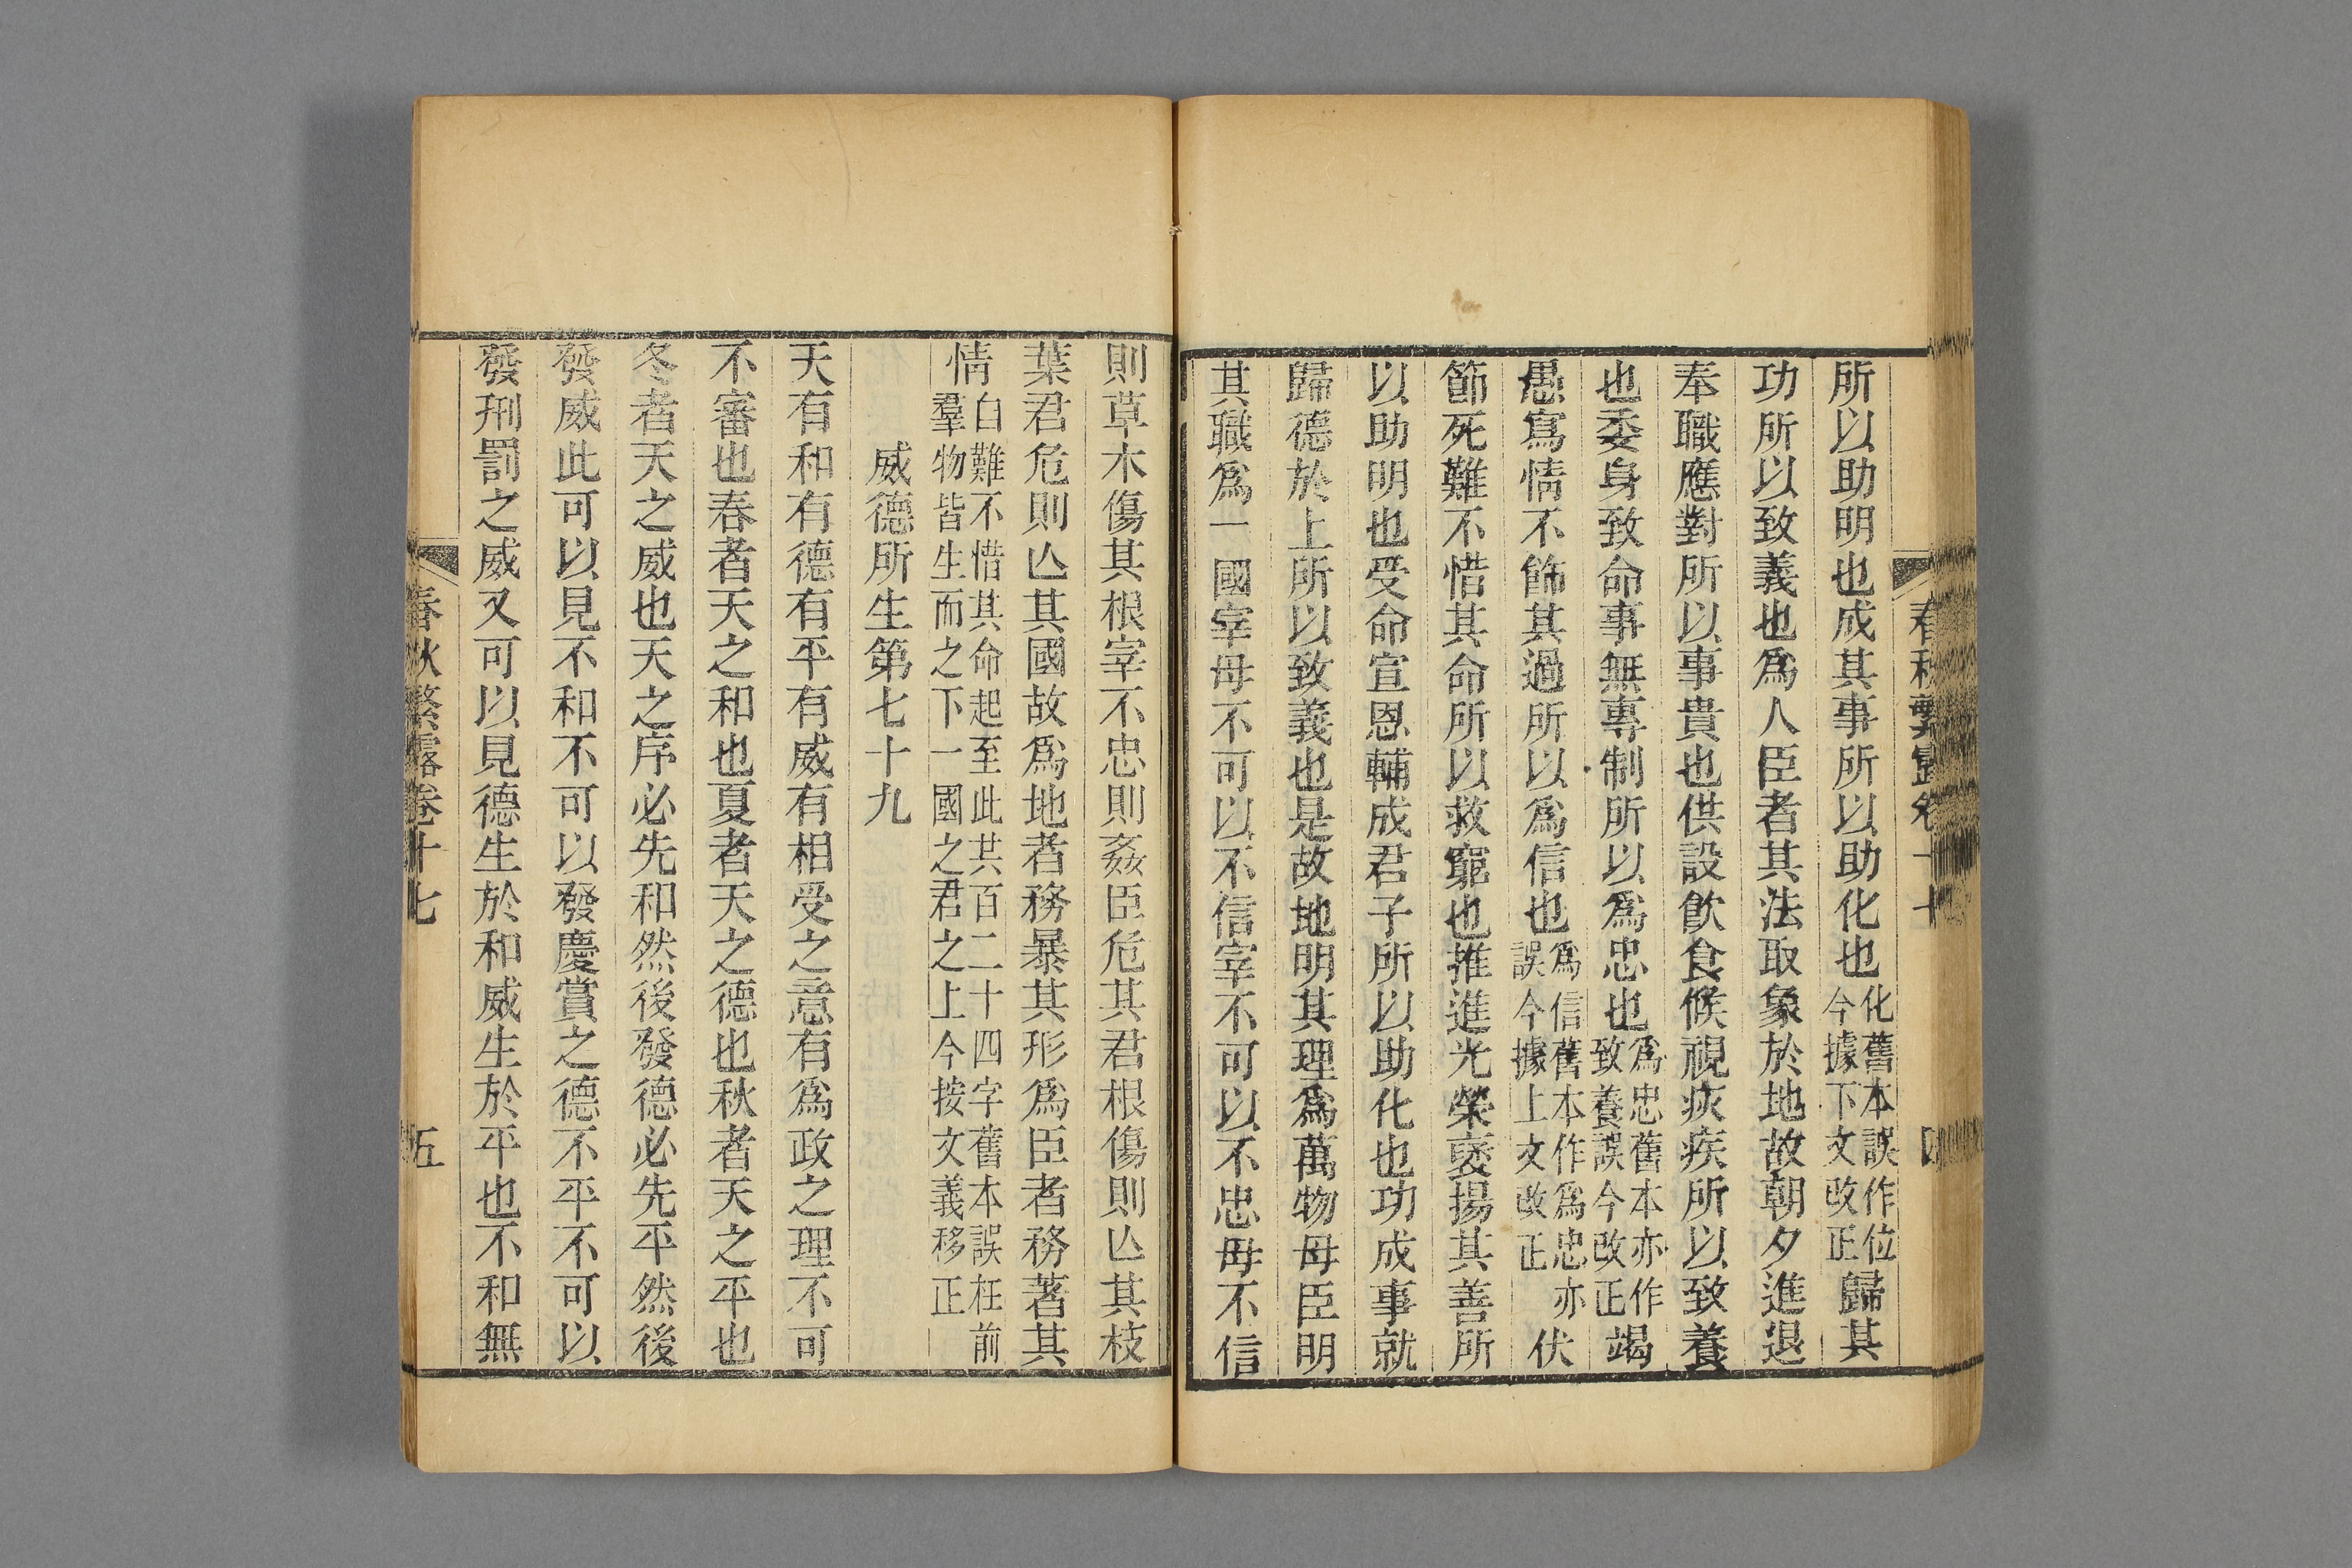 所以助明也成其事所以助化也化舊本誤作位今據下文改正歸其
功所以致義也爲人臣者其法取象於地故朝夕進退
奉職應對所以事貴也供設飲食候視疢疾所以致養
也委身致命事無專制所以爲忠也爲忠舊本亦作致養誤今改正竭
愚寫情不飾其過所以爲信也爲信舊本作爲忠亦誤今據上文改正伏
節死難不惜其命所以救窮也推進光榮襃揚其善所
以助明也受命宣恩輔成君子所以助化也功成事就
歸德於上所以致義也是故地明其理爲萬物母臣明
其職爲一國宰母不可以不信宰不可以不忠母不信
則草木傷其根宰不忠則姦臣危其君根傷則亾其枝
葉君危則亾其國故爲地者務暴其形爲臣者務著其
情自難不惜其命起至此共百二十四字舊本誤在前羣物皆生而之下一國之君之上今按文義移正
威德所生第七十九
天有和有德有平有威有相受之意有爲政之理不可
不審也春者天之和也夏者天之德也秋者天之平也
冬者天之威也天之序必先和然後發德必先平然後
發威此可以見不和不可以發慶賞之德不平不可以
發刑罰之威又可以見德生於和威生於平也不和無
春秋繁露卷十七
五